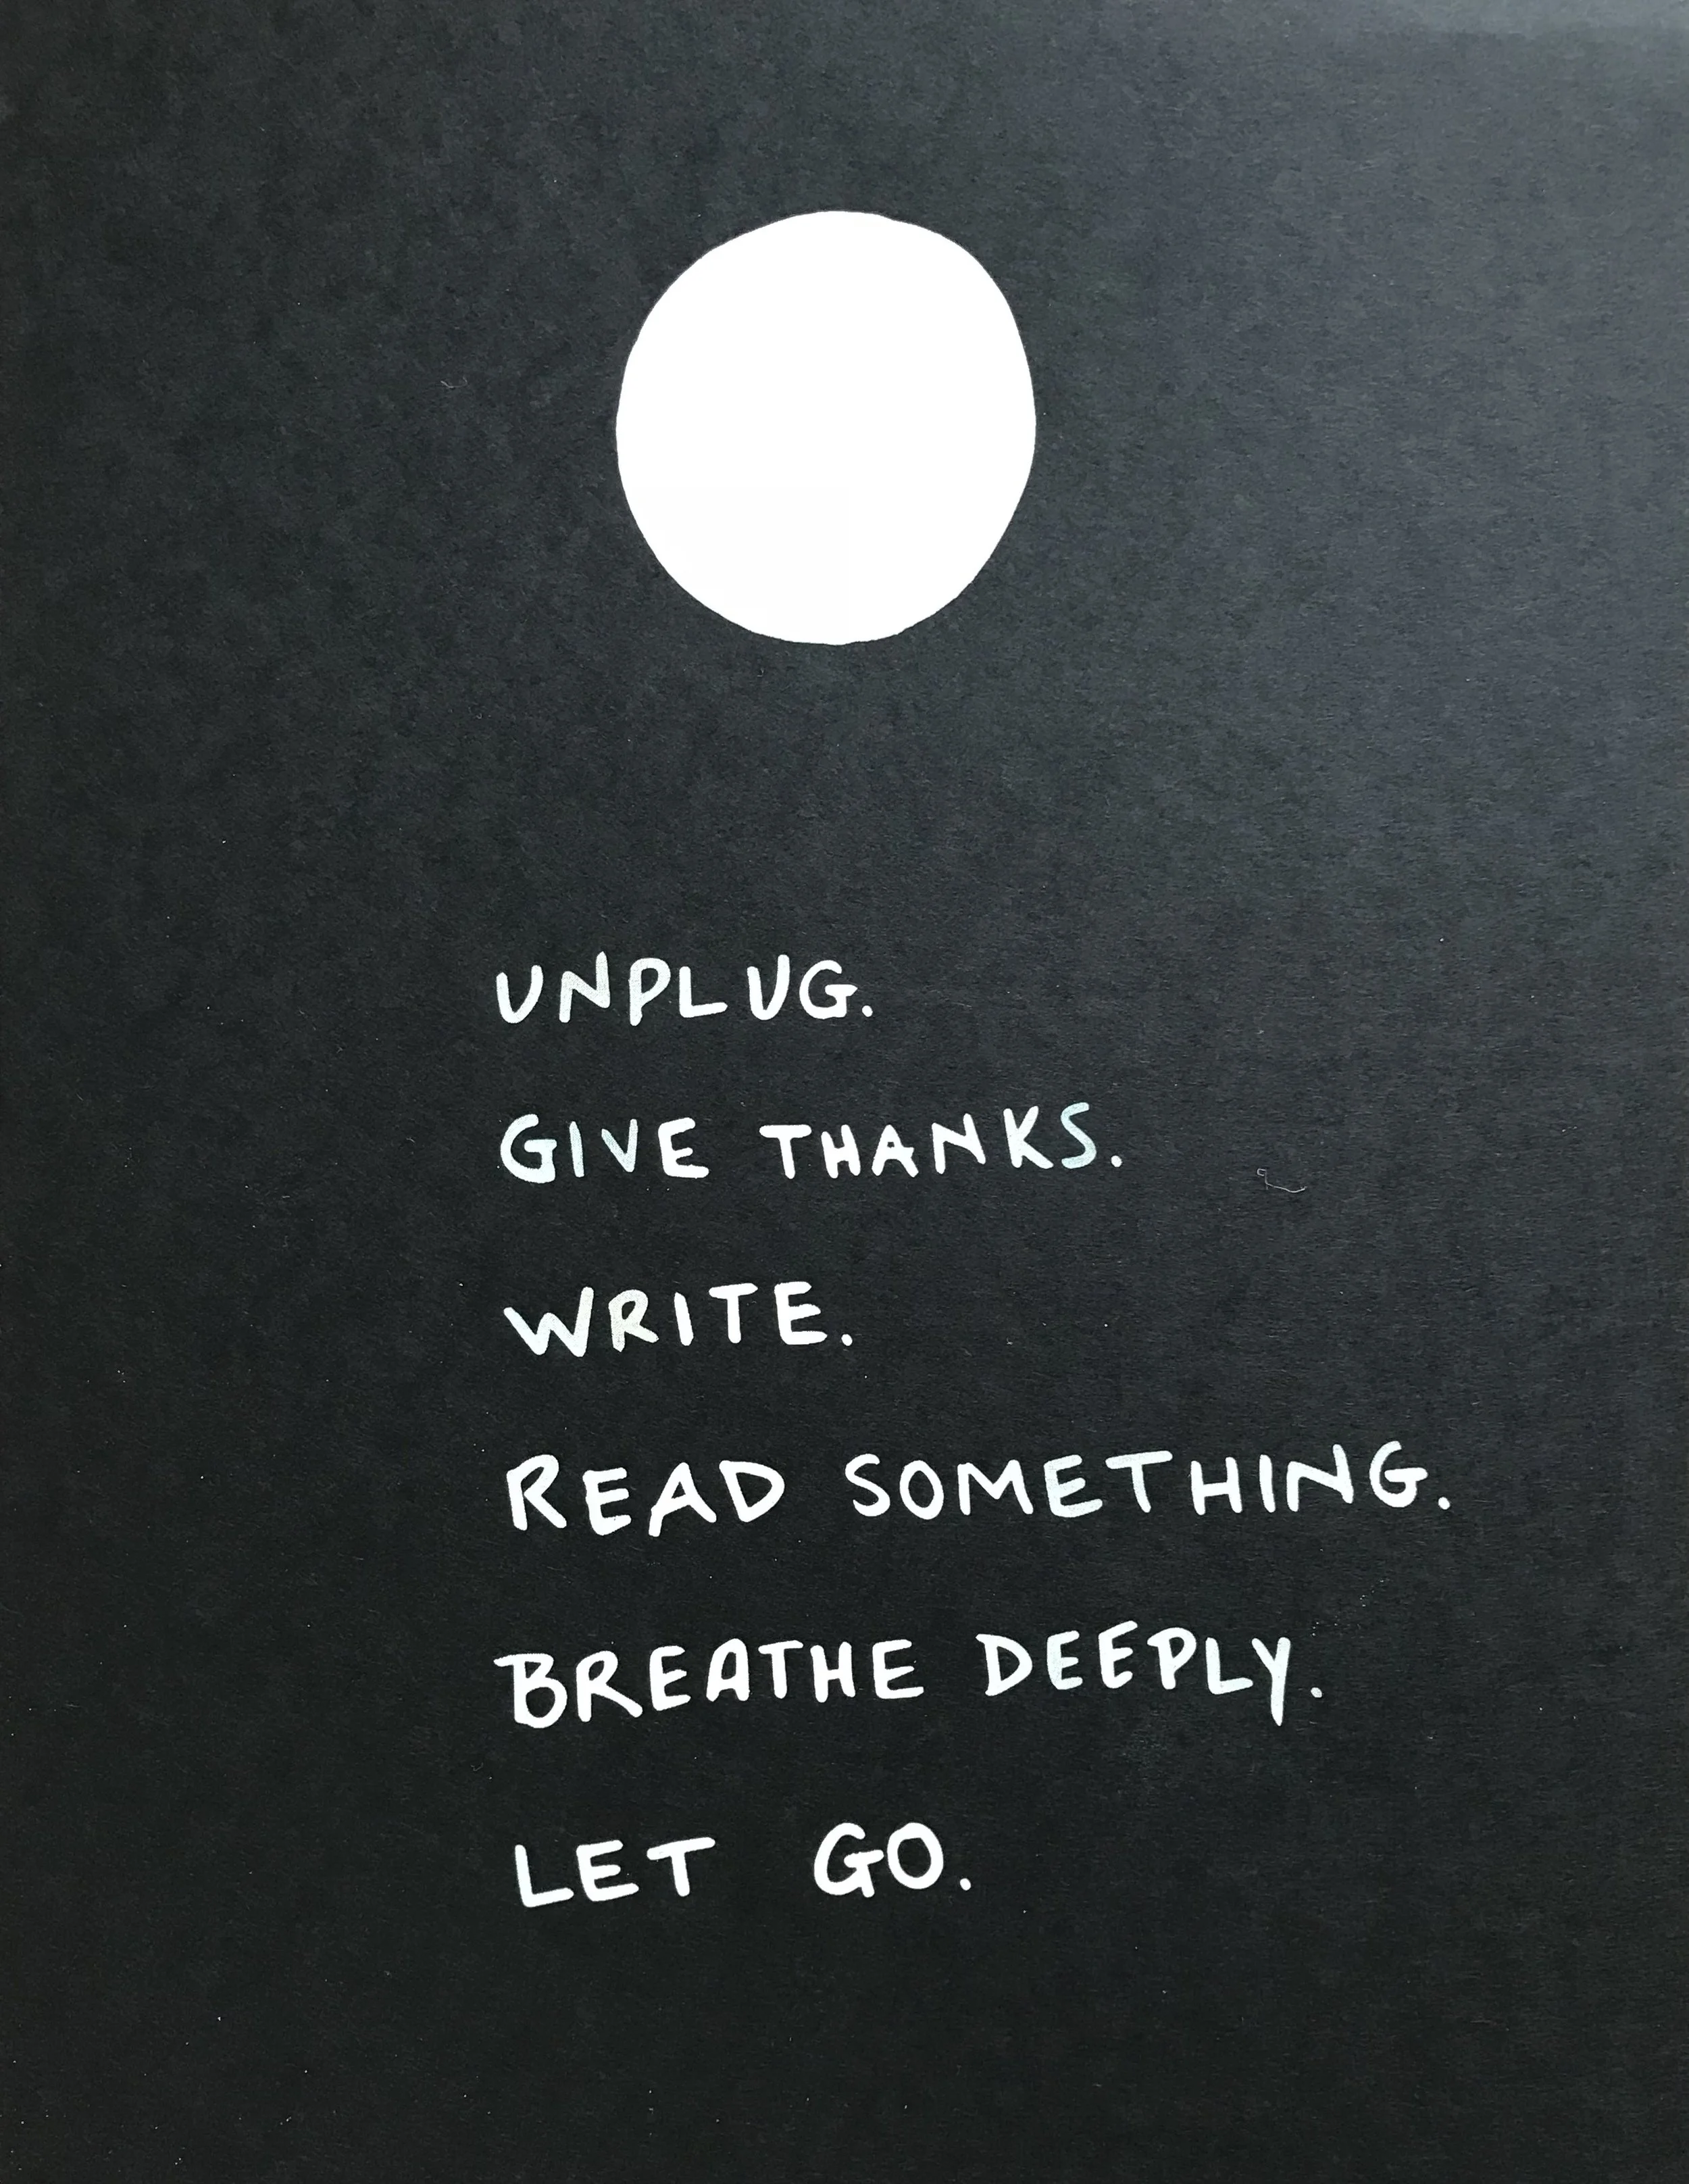 UNPLUG.
GIVE THANKS.
WRITE.
READ SOMETHING.
BREATHE DEEPLY.
LET GO.